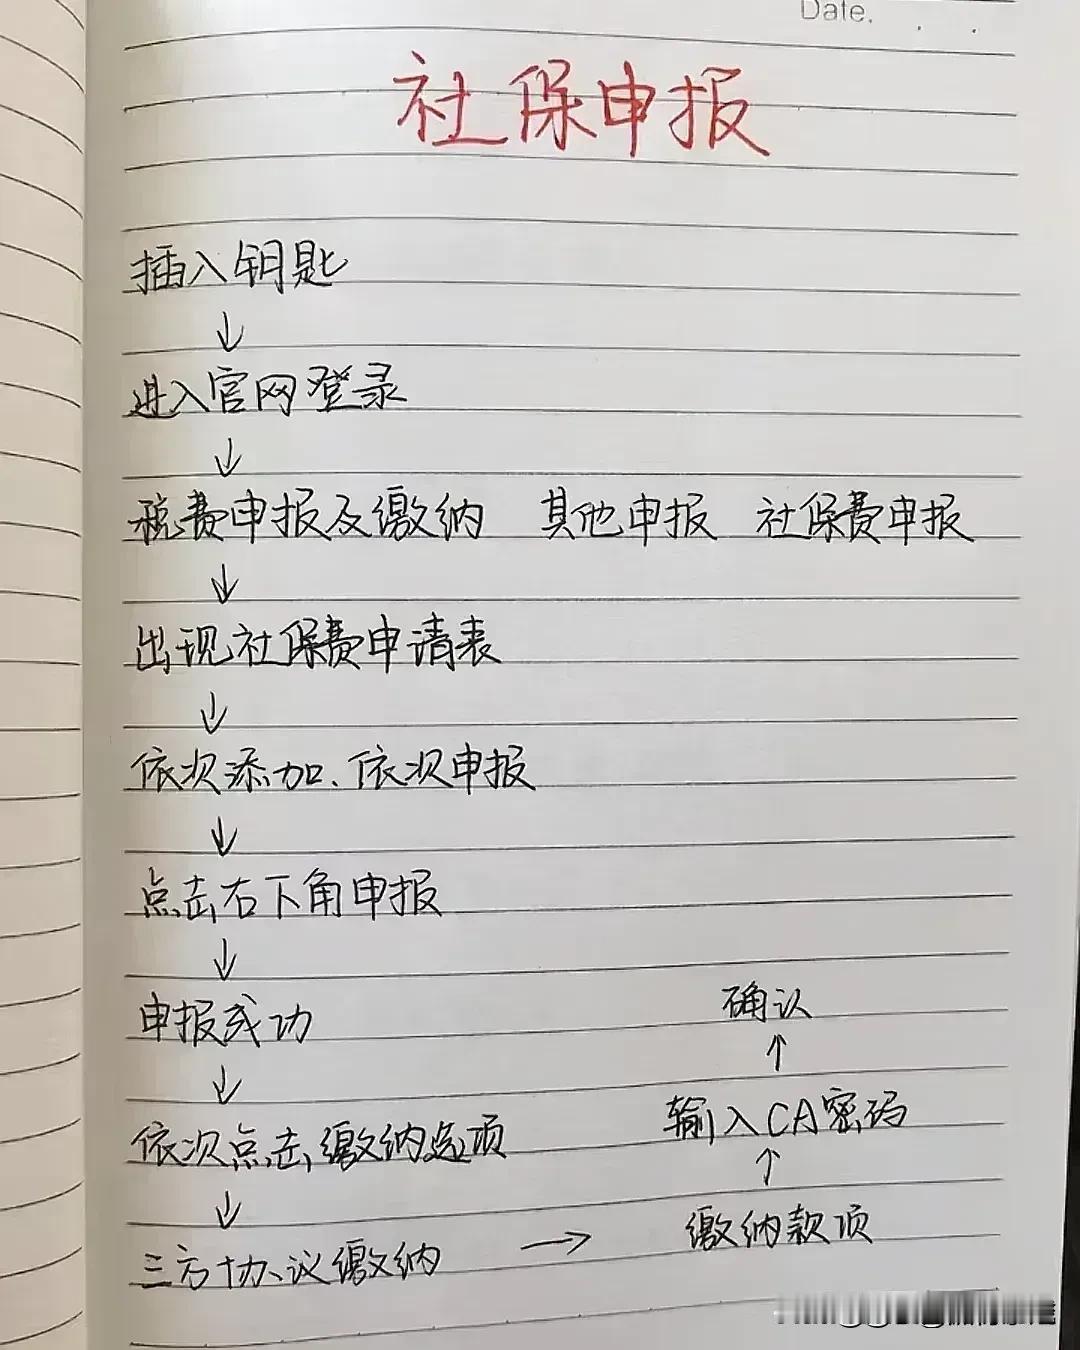 Date.
社保申报
插入钥匙
↓
进入官网登录
↓
税费申报及缴纳 其他申报 社保费申报
↓
出现社保费申请表
↓
依次添加、依次申报
↓
点击右下角申报
↓
申报成功
↓
依次点击缴纳选项
↓
三方协议缴纳 → 缴纳款项
↑
输入CA密码
↑
确认